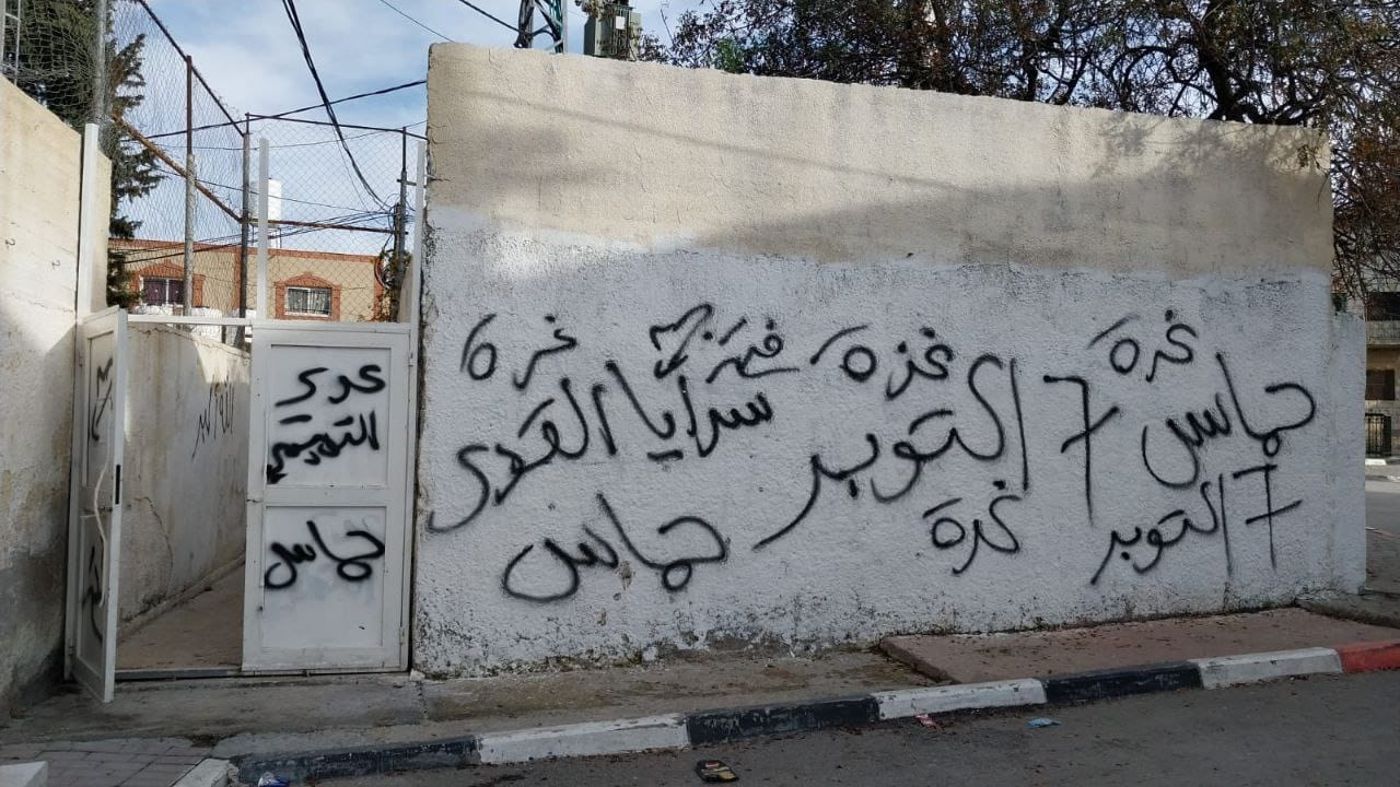 غزة
حماس
7 اكتوبر
غزة
7 اكتوبر
غزة
غزة
سرايا القدس
حماس
عدي
التميمي
حماس